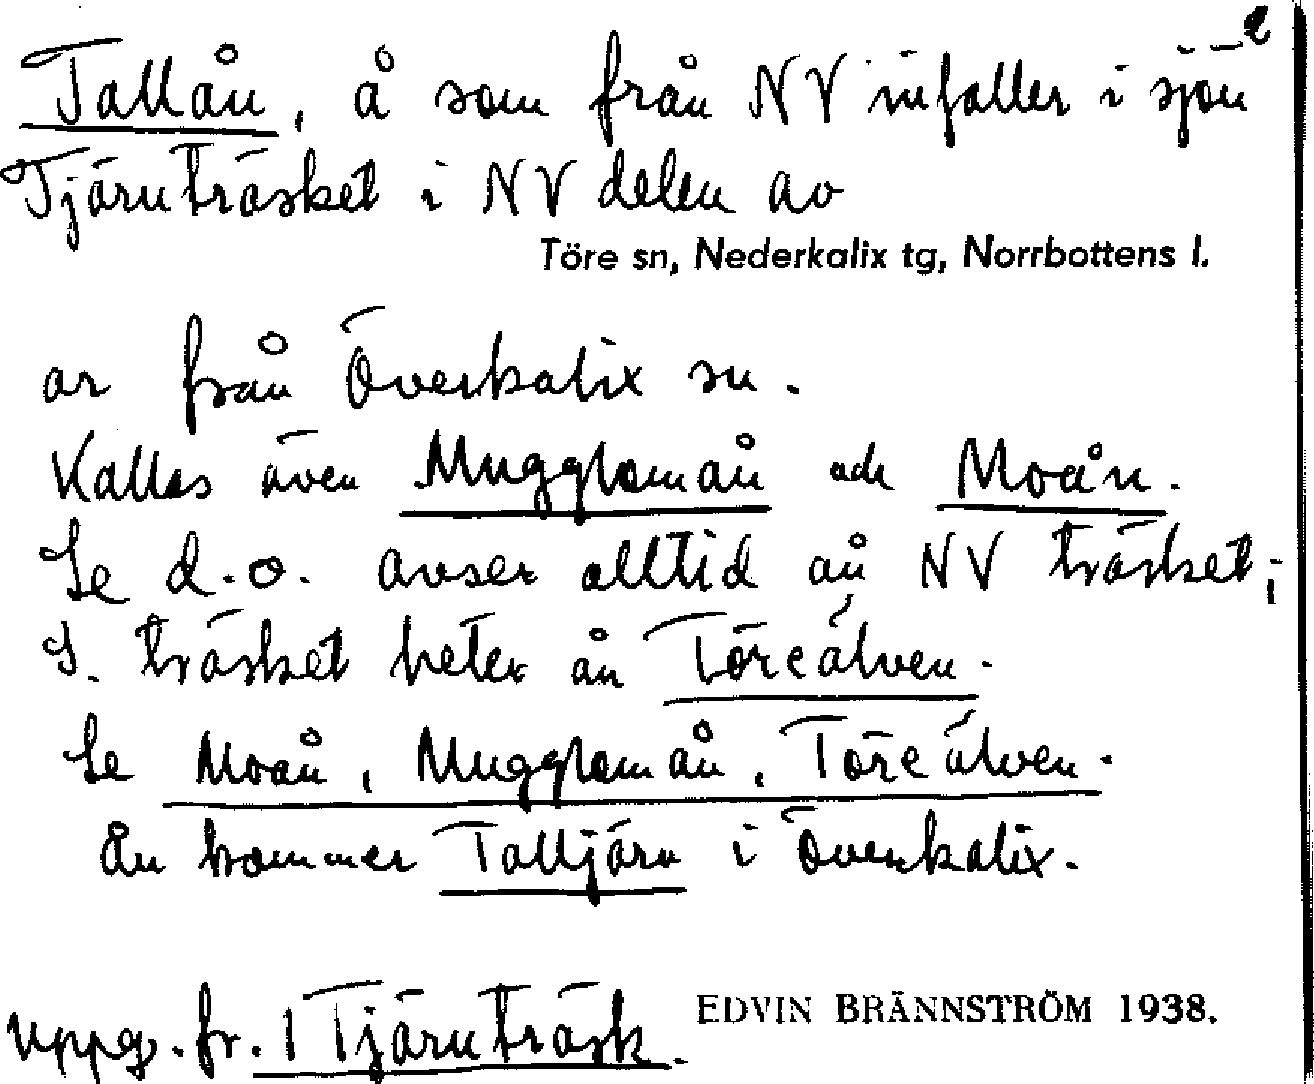 2
Tallån, å som från NV infaller i sjön
Tjärnträsket i NV delen av
Töre sn, Nederkalix tg, Norrbottens l.
är från Överkalix sn.
Kallas även Muggloman och Moån.
Se d.o. avser alltid ån NV träsket;
S. träsket heter ån Töreälven.
Se Moån, Muggloman, Töreälven.
Ån kommer Talltjärn i Överkalix.
uppg. fr. 1 Tjärnträsk.
EDVIN BRÄNNSTRÖM 1938.